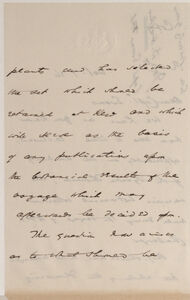 plants and has selected
the set which should be
retained at Kew and which
will serve as the basis
of any publication upon
the botanical results of the
voyage which may
afterwards be decided upon.
The question now arises
as to what should be